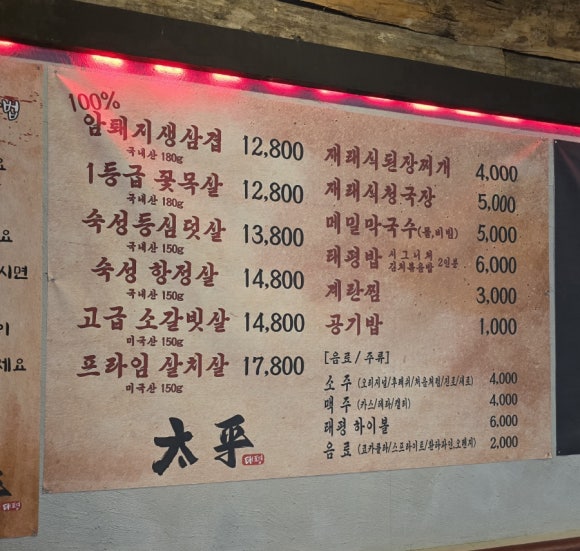 100%
암퇘지생삼겹 12,800
국내산 180g
1등급 꽃목살 12,800
국내산 180g
숙성등심덧살 13,800
국내산 150g
숙성 항정살 14,800
국내산 150g
고급 소갈빗살 14,800
미국산 150g
프라임 살치살 17,800
미국산 150g
太平
태평
재래식된장찌개 4,000
재래식청국장 5,000
메밀막국수(물,비빔) 5,000
태평밥 시그니처 김치볶음밥 2인분 6,000
계란찜 3,000
공기밥 1,000
[음료 / 주류]
소 주 (오리지널/후레쉬/처음처럼/진로/새로) 4,000
맥 주 (카스/테라/켈리) 4,000
태평 하이볼 6,000
음 료 (코카콜라/스프라이트/환타파인,오렌지) 2,000
법
요
시면
이
세요
태평